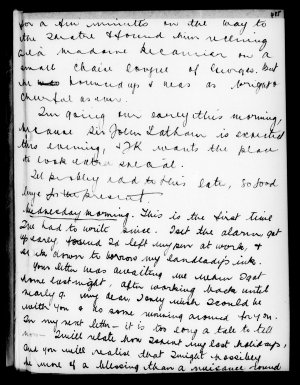 for a few minutes on the way to
the theatre & found him reclining
à la Madame Recamier on a
small chaise longue of George's. But
he rounds up & was as bright &
cheerful as ever.
I'm going our early this morning,
because Sir John Latham is expected
this evening, & J.K. wants the place
to look extra special.
I'll probably add to this late, so good
bye for the present.
Wednesday morning. This is the first time
I've had to write since. Just the alarm got
up early found I'd left my pen at work, &
sit down to borrow my landlady's ink.
Your letter was awaiting me when I got
home last night, after working back until
nearly 9. My dear I only wish I could be
with you & do some running around for you.
In my next letter - it is too long a tale to tell
now I will relate how I spent my last holidays,
and you will realise that I might possibly
be more of a blessing than a nuisance round